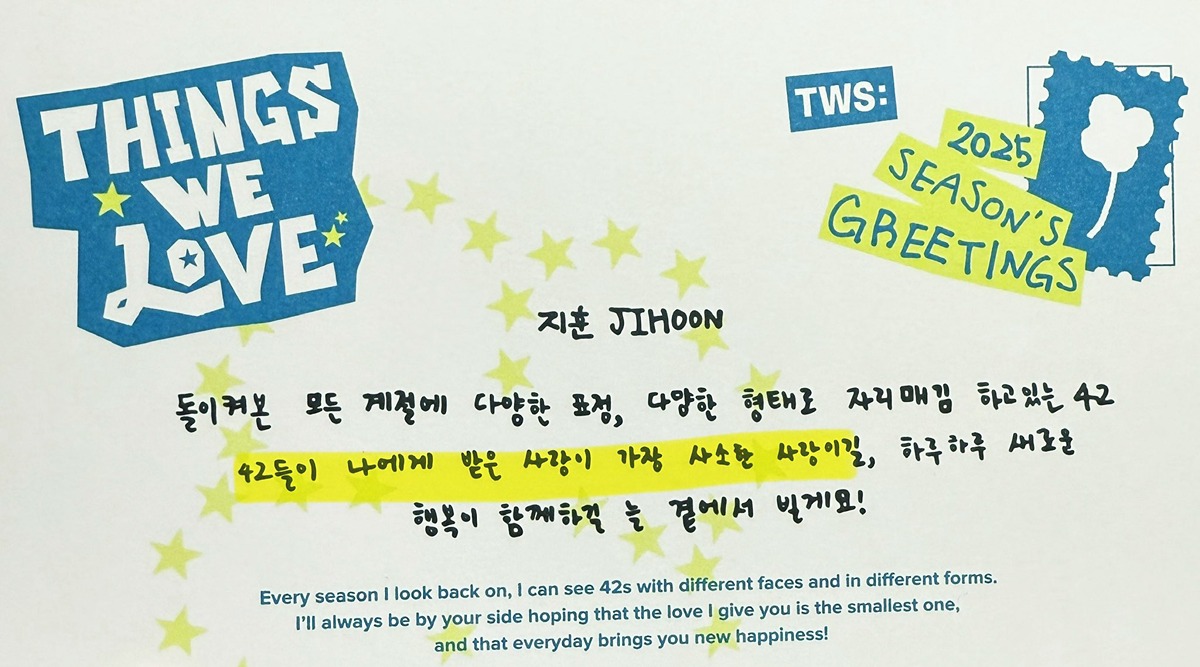 THINGS
WE
LOVE
TWS:
2025
SEASON'S
GREETINGS
지훈 JIHOON
돌이켜본 모든 계절에 다양한 표정, 다양한 형태로 자리매김 하고있는 42
42들이 나에게 받은 사랑이 가장 사소한 사랑이길, 하루하루 새로운
행복이 함께하길 늘 곁에서 빌게요!
Every season I look back on, I can see 42s with different faces and in different forms.
I'll always be by your side hoping that the love I give you is the smallest one,
and that everyday brings you new happiness!